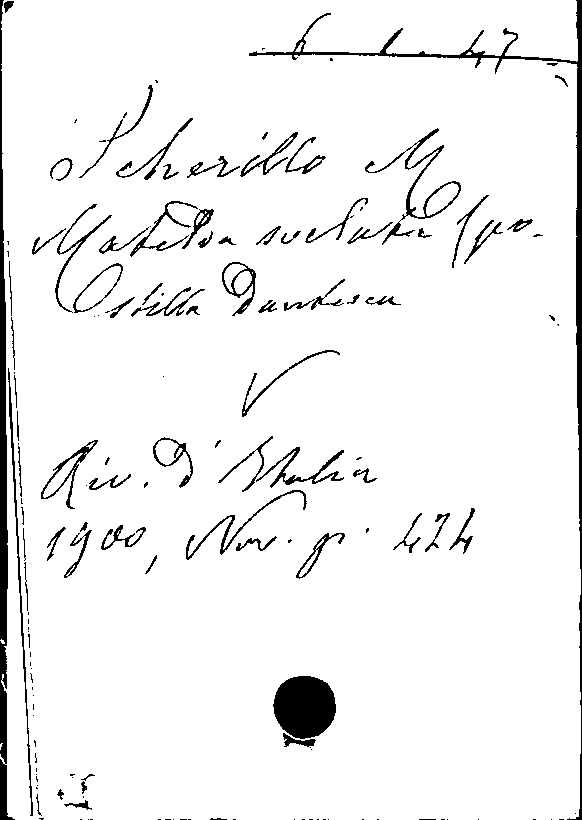 6. 1. 47
Scherillo M
Matelda svelata (po-
stilla Dantesca
V
Riv. d'Italia
1900, Nov. p. 424